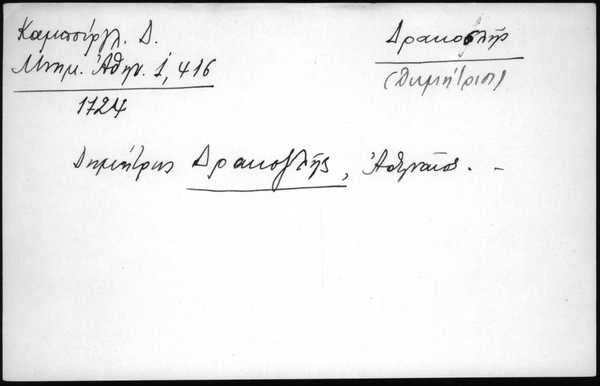 Καμπούργλ. Δ.
Μνημ. Ἀθην. 1, 416
1724
Δρακοσλής
(Δημήτριος)
Δημήτρης Δρακοζλῆς, Ἀθηναῖος. -